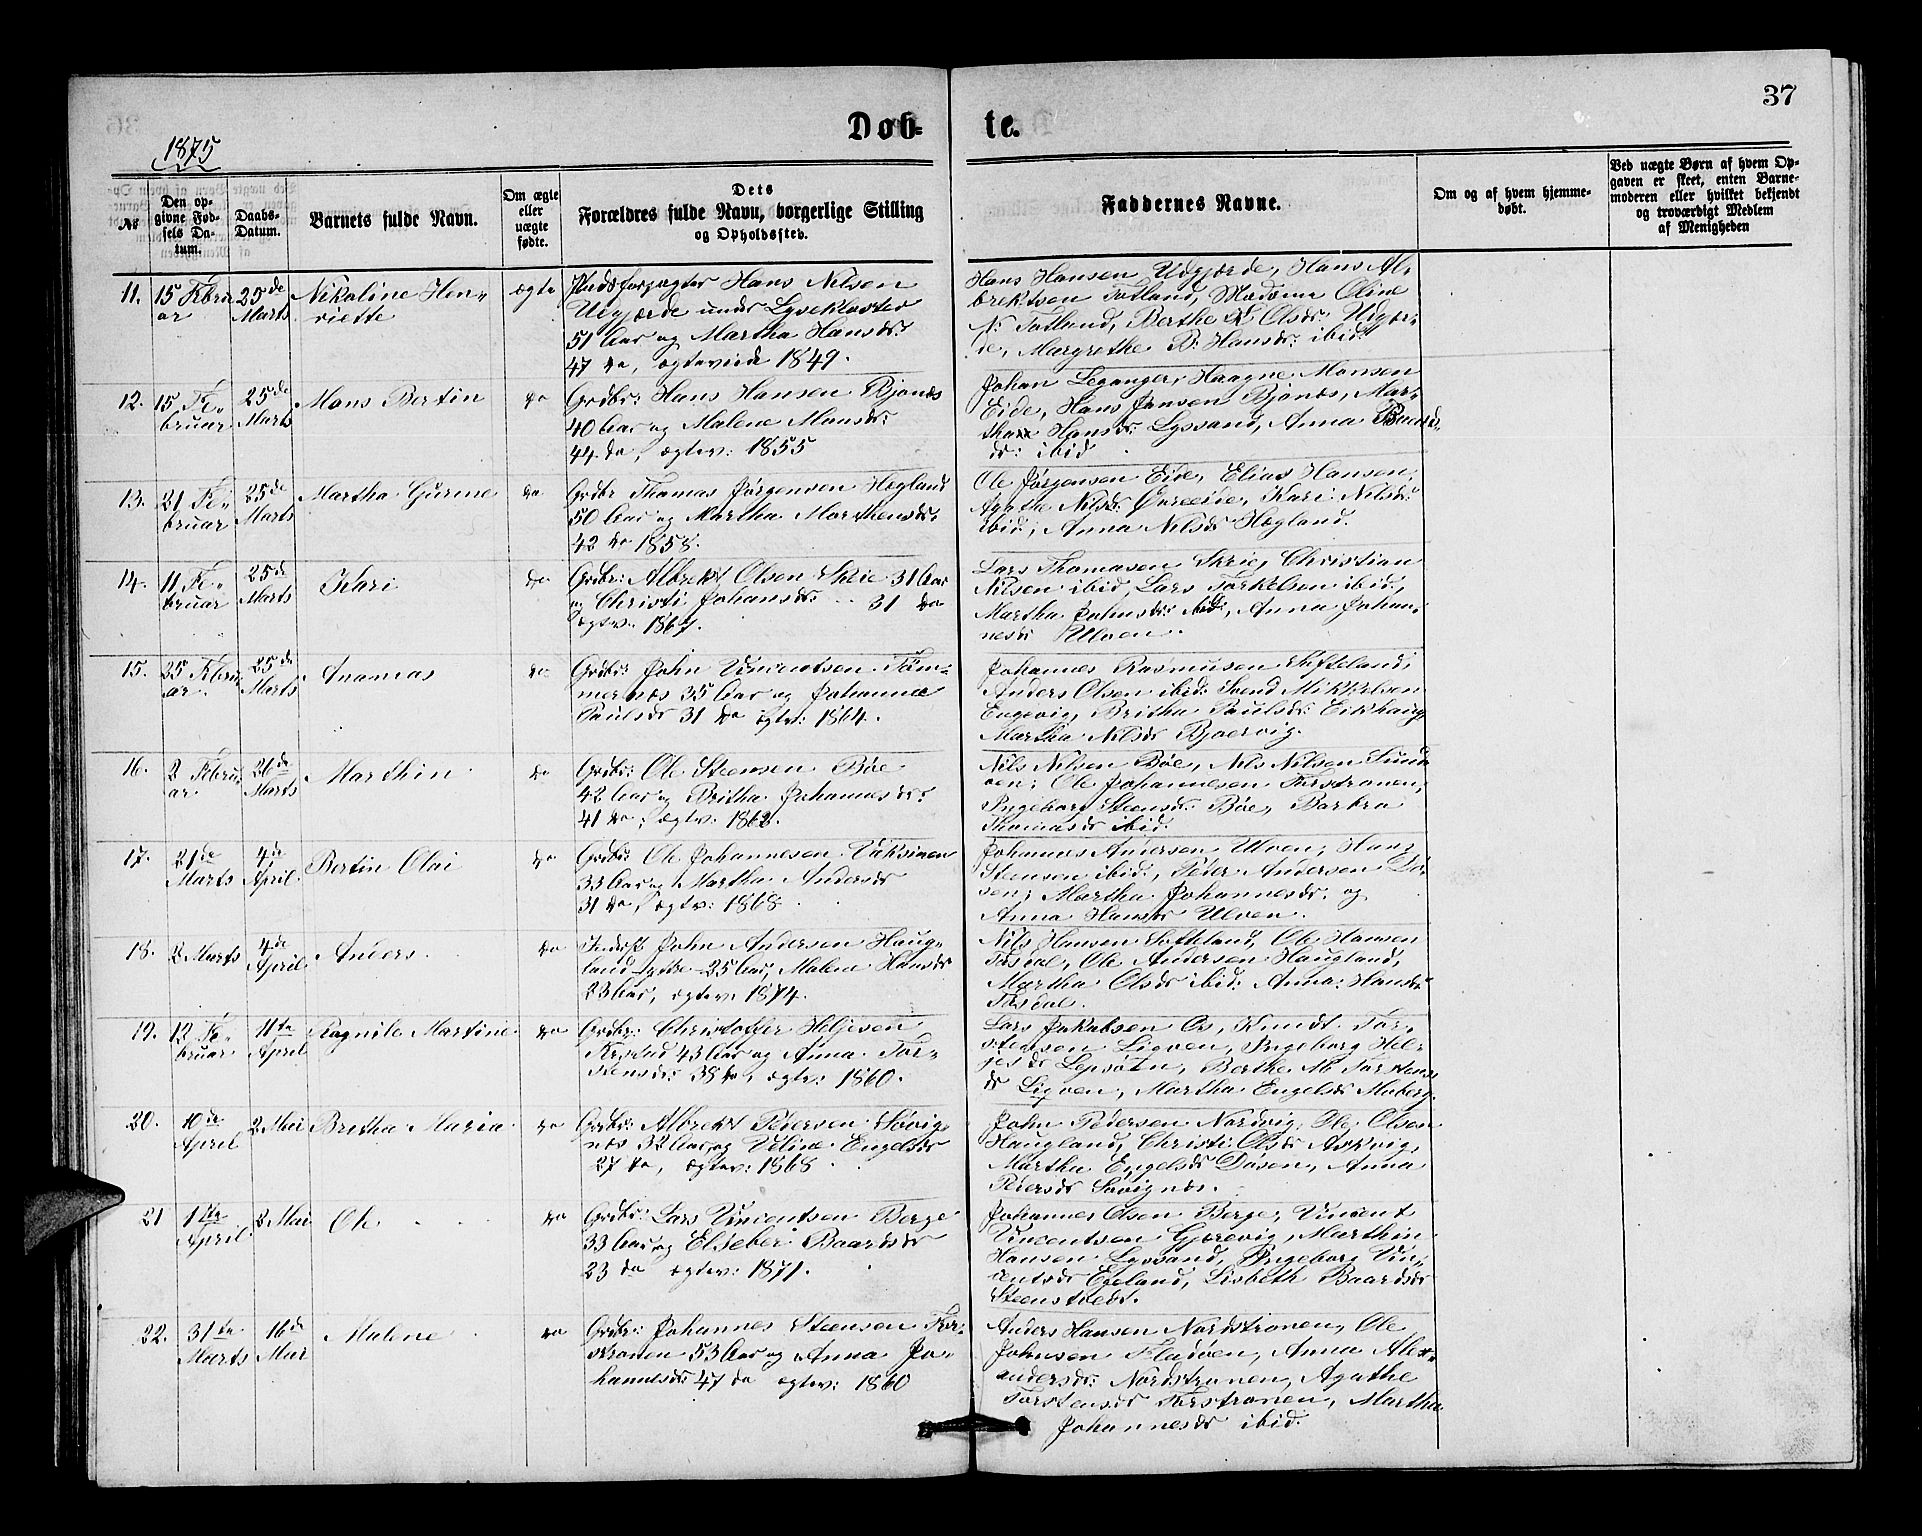 37
Døb- te.
1875
№
Den opgivne Fødsels Datum.
Daabs-Datum.
Barnets fulde Navn.
Om ægte eller uægte fødte.
Dets Forældres fulde Navn, borgerlige Stilling og Opholdssted.
Faddernes Navne.
Om og af hvem hjemmedøbt.
Ved uægte Børn af hvem Opgaven er skeet, enten Barnemoderen eller hvilket bekjendt og troværdigt Medlem af Menigheden
11. 15 Februar 25de Marts Nikoline Henriette ægte
Hans Nilsen
Udgjærde under Lysekloster
51 Aar og Martha Hansdr:
47 do, ægteviede 1849.
Hans Hansen Udgjærde, Hans Al-
brektsen Totland, Madame Oline
N: Totland, Berthe Olsdr: Udgjær-
de, Margrethe B: Hansdr: ibid
12. 15 Februar 25de Marts Mons Bertin do
Grdbr: Hans Hansen Bjånæs
40 Aar og Malene Monsdr:
44 do, ægtev: 1855
Johan Leganger, Haagne Monsen
Eide, Hans Jansen Bjånæs, Mar-
tha Hansdr: Lyssand, Anna
dr: ibid
13. 21 Februar 25de Marts Martha Gurine do
Grdbr Thomas Jørgensen Hegland
50 Aar og Martha
42 do 1858.
Ole Jørgensen Eide, Elias Hansen,
Agathe Nilsdr: Øvreeide, Kari Nilsdr:
ibid, Anna Nilsdr Hegland.
14. 11 Februar 25de Marts Kari do
Grdbr: Albrekt Olsen Skeie 31 Aar
og Christi Johansdr: 31 do
ægtv: 1867.
Lars Thomasen Skeie, Christian
Nilsen ibid, Lars Torkelsen ibid,
Martha Johnsdr: ibid, Anna Johan-
nesdr Ulven.
15. 25 Februar 25de Marts Ananias do
Grdbr: John Vincentsen Tøm-
mernæs 35 Aar og Johanna
Paulsdr 31 do ægtv: 1864.
Johannes Rasmusen Skifteland,
Anders Olsen ibid: Svend Mikkelsen
Engevig, Britha Paulsdr: Eikhaug
Martha Nilsdr Bjørvig.
16. 2 Februar 26de Marts Marthin do
Grdbr: Ole Steensen Bøe
42 Aar og Britha Johannesdr:
41 do, ægtev: 1862.
Nils Nilsen Bøe, Nils Nilsen
Ole Johannesen Førstrønen,
Ingeborg Steensdr: Bøe, Barbra
Thomasdr ibid.
17. 21de Marts 4de April Bertin Olai do
Grdbr: Ole Johannesen Vaksinen
33 Aar og Martha Andersdr
31 do, ægtv: 1868.
Johannes Andersen Ulven, Hans
Steensen ibid, Peder Andersen Dø-
sen, Martha Johannesdr: og
Anna Hansdr Ulven.
18. 2 Marts 4de April Anders do
Inderst John Andersen Haug-
land 25 Aar, Malene Hansdr
23 Aar, ægtev: 1874.
Nils Hansen Søfteland, Ole Hansen
Tøsdal, Ole Andersen Haugland,
Martha Olsdr ibid: Anna: Hansdr
Tøsdal.
19. 12 Februar 11te April Ragnile Martine do
Grdbr: Christoffer Heljesen
43 Aar og Anna Tor-
stensdr: 38 do, ægtv: 1860.
Lars Jakobsen Os, Knudt Tor-
stensen Ligven, Ingeborg Hel-
jesdr Lepsøen, Berthe M: Torstens-
dr Ligven, Martha Engelsdr Moberg.
20. 10de April 2 Mai Britha Maria do
Grdbr: Albrekt Pedersen Søvig-
næs 32 Aar, og Veline Engelsdr
27 do, ægtev: 1868.
John Pedersen Nordvig, Ole Olsen
Haugland, Christi Olsdr Askvig,
Martha Engelsdr Døsen, Anna
Pedersdr Søvignæs.
21 1te April 2 Mai Ole do
Grdbr: Lars Vincentsen Berge
33 Aar og Elseber Baardsdr
23 do ægtev: 1871.
Johannes Olsen Berge, Vincent
Vincentsen Gjerevig, Marthin
Hansen Lyssand, Ingeborg Vin-
centsdr Egeland, Lisbeth Baardsdr
Steenstvedt.
22. 31te Marts 16de Mai Malene do
Grdbr: Johannes Steensen Før-
strønen 53 Aar og Anna Jo-
hannesdr: 47 do ægtev: 1860
Anders Hansen Nordstrønen, Ole
Johnsen Fladøen, Anna Alex-
andersdr: Nordstrønen, Agathe
Torstensdr Førstrønen, Martha
Johannesdr ibid.